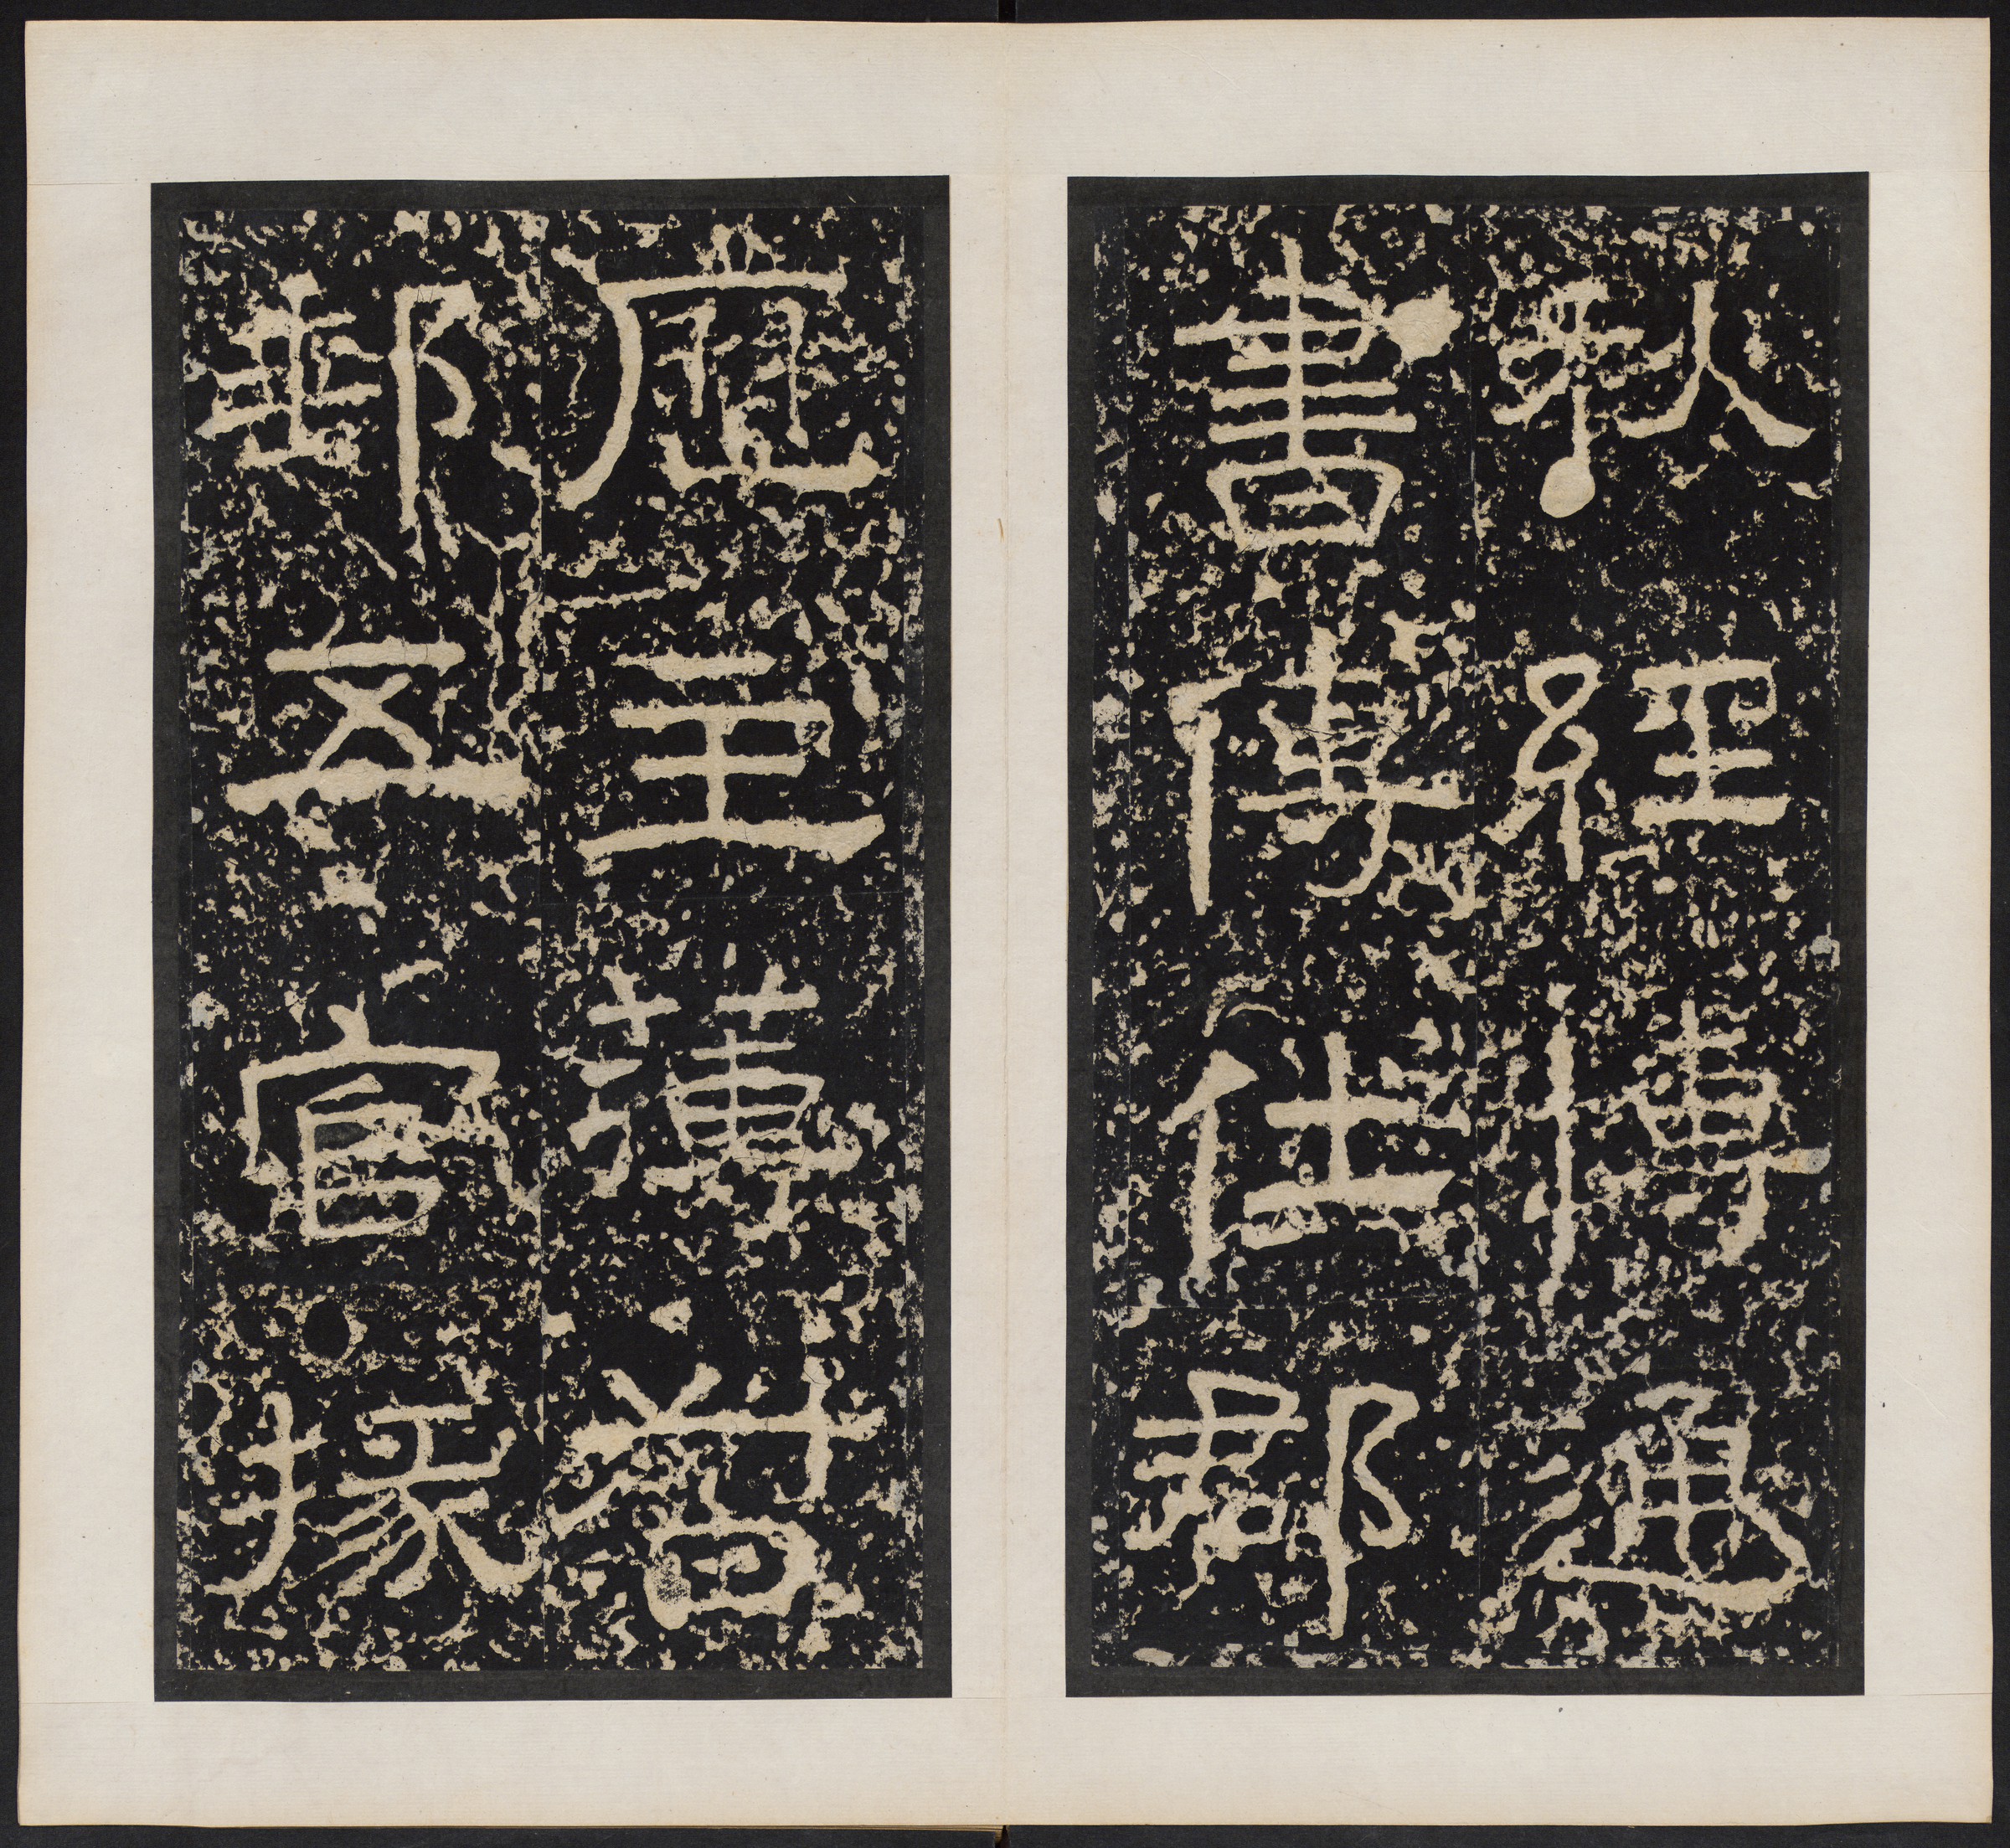 秋經博通
書傳仕郡
歷主簿督
郵五官掾